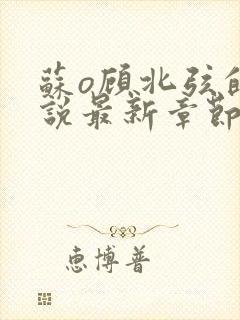 蘇o顧北弦的
說最新章節
惠博普